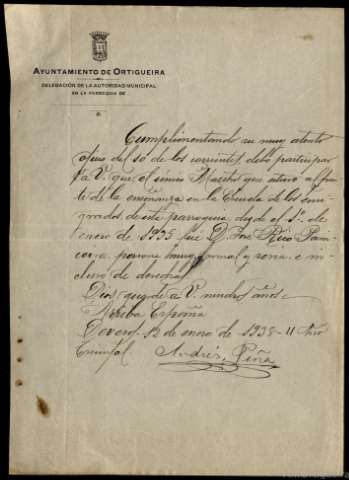 AYUNTAMIENTO DE ORTIGUEIRA
DELEGACIÓN DE LA AUTORIDAD MUNICIPAL
EN LA PARROQUIA DE
Cumplimentando su muy atento
oficio del 10 de los corrientes, debo participar
a V. que el único Maestro que estuvo al fren
te de la enseñanza en la Escuela de los emi
grados de esta parroquia, desde el 1º. de
enero de 1935 fué D. José Rico
persona muy formal y seria e in
clusive de derechas
Dios guarde a V. muchos años
Arriba España
12 de enero de 1938 - II Año
Triunfal
Andrés Piña